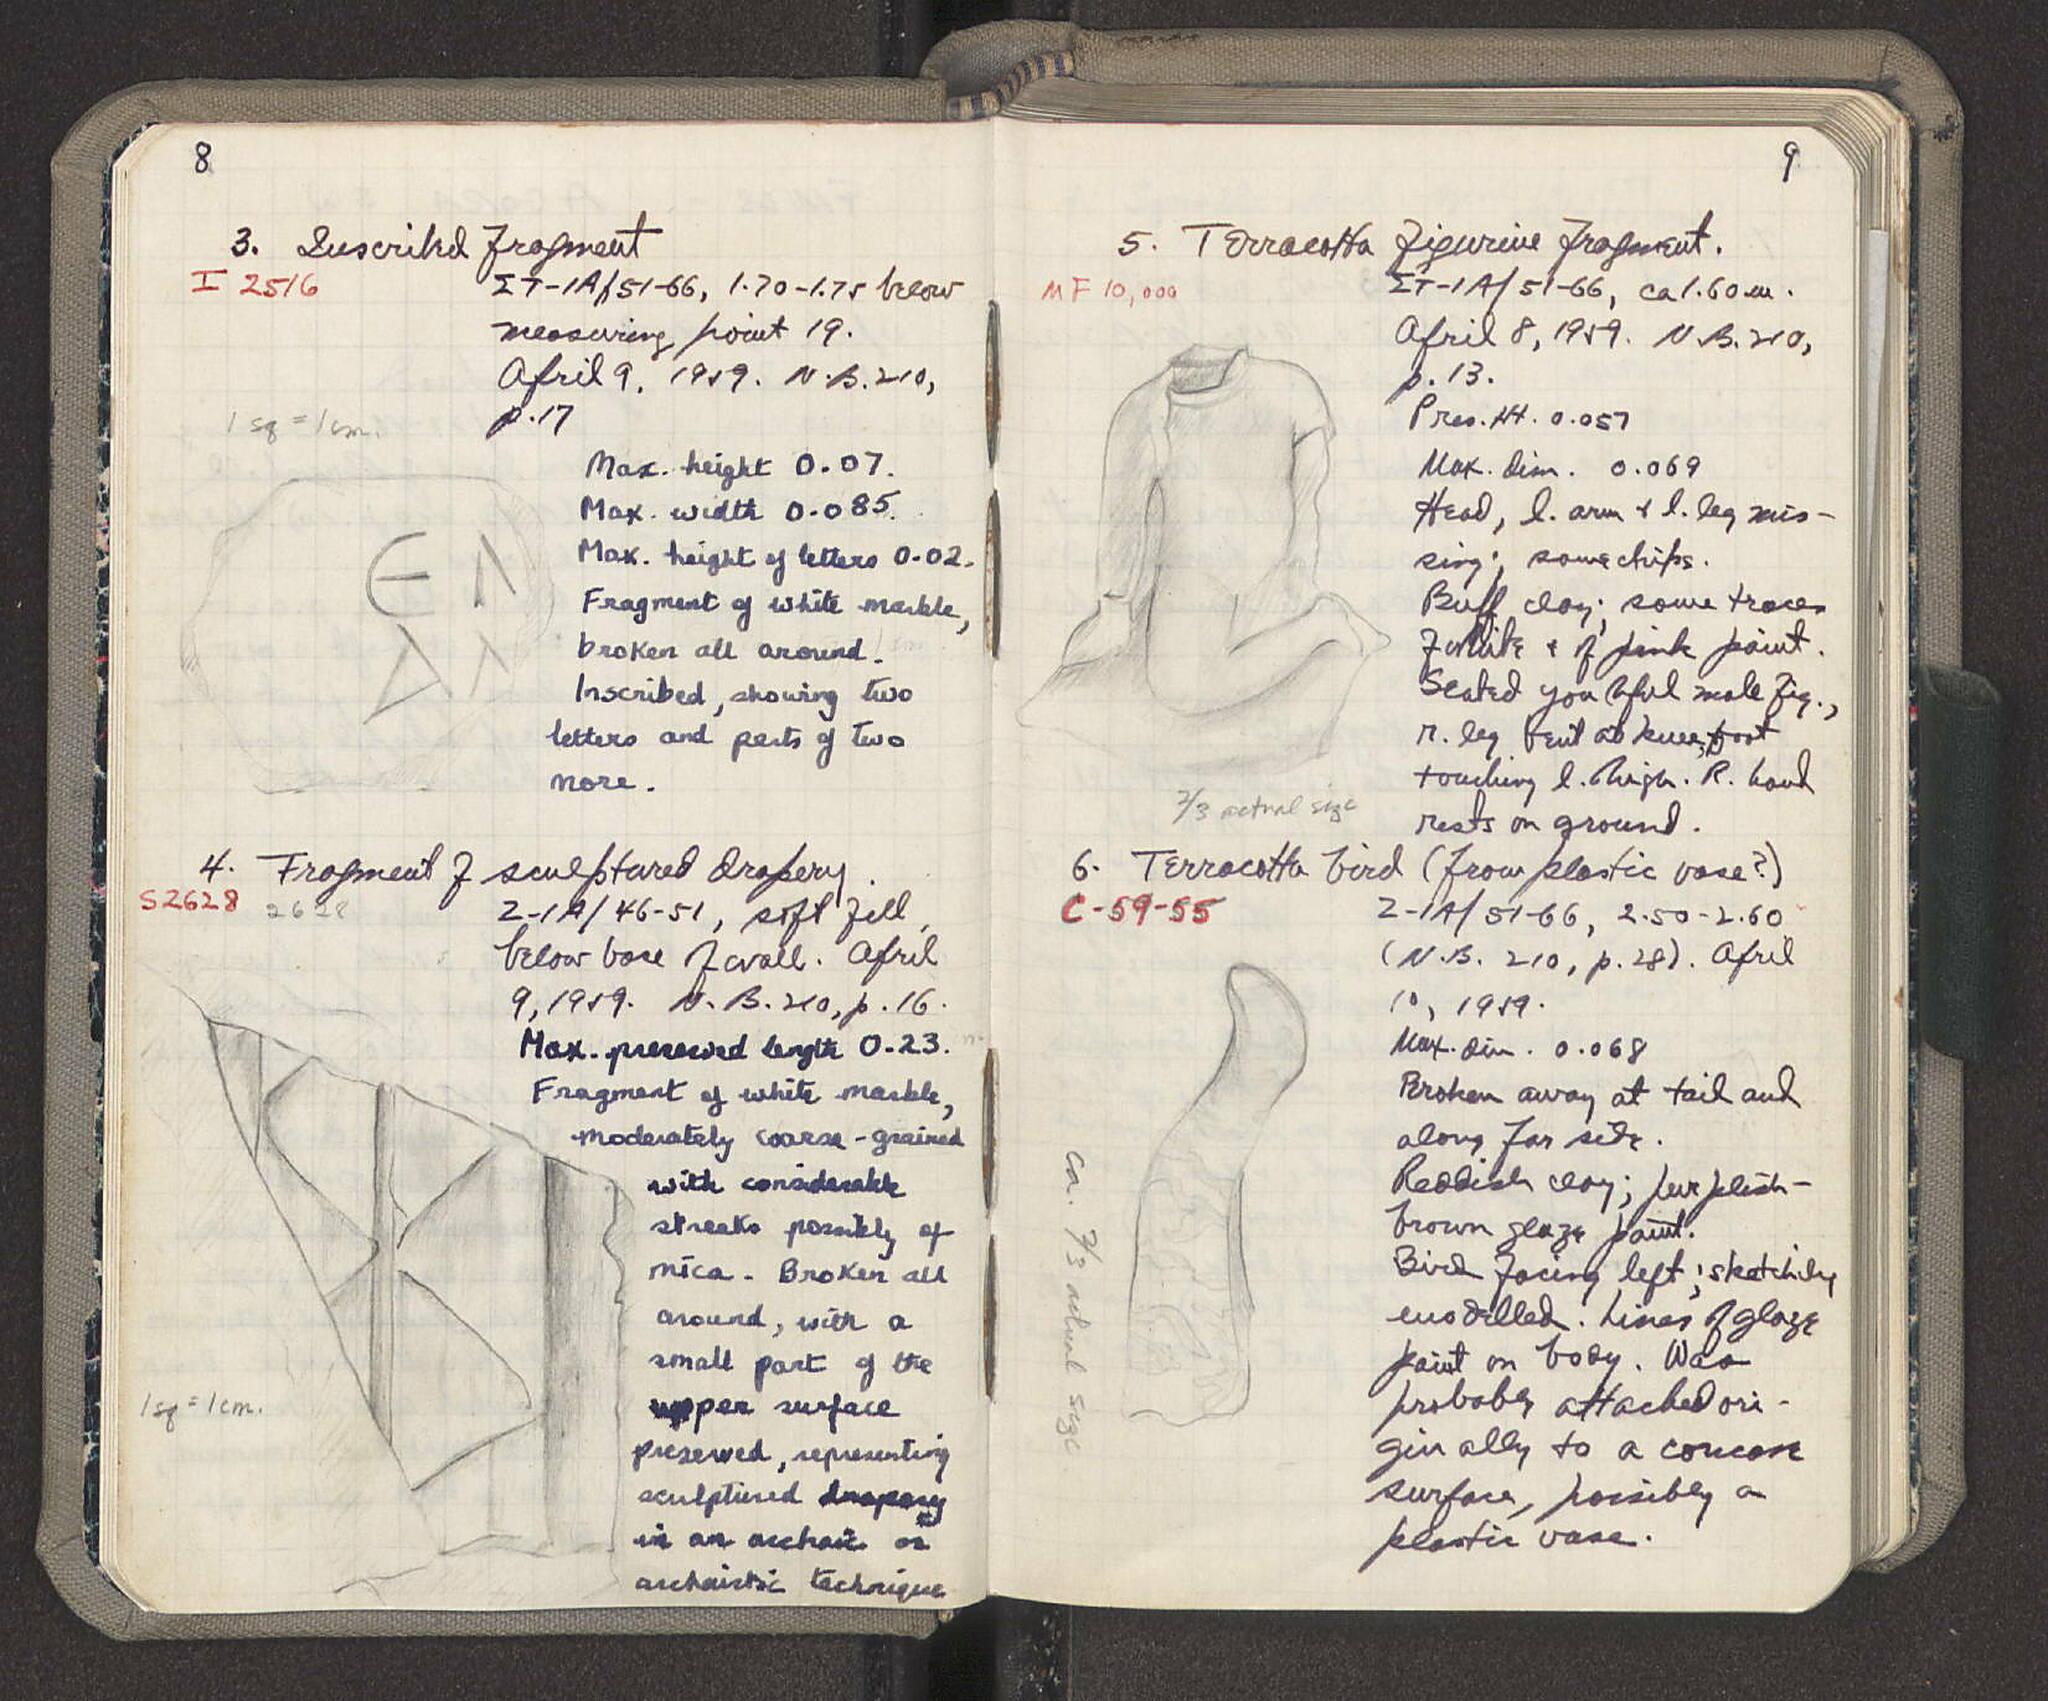 8
3. Inscribed fragment
I 2516
ΣΤ-1A/51-66, 1.70-1.75 below
measuring point 19.
April 9, 1959. N.B. 210,
p.17
1 sq = 1cm.
Max. height 0.07.
Max. width 0.085.
Max. height of letters 0.02.
Fragment of white marble,
broken all around.
Inscribed, showing two
letters and parts of two
more.
4. Fragment of sculptured drapery.
S2628 2628
Z-1A/46-51, soft fill,
below base of wall. April
9, 1959. N.B. 210, p.16.
Max. preserved length 0.23.
Fragment of white marble,
moderately coarse-grained
with considerable
streaks possibly of
mica. Broken all
around, with a
small part of the
upper surface
preserved, representing
sculptured drapery
in an archaic or
archaistic technique
1 sq = 1cm.
9
5. Terracotta figurine fragment.
MF 10,000
ΣΤ-1A/51-66, ca 1.60 m.
April 8, 1959. N.B. 210,
p.13.
Pres. Ht. 0.057
Max. dim. 0.069
Head, l. arm & l. leg mis-
sing; some chips.
Buff clay; some traces
of white & of pink paint.
Seated youthful male fig.,
r. leg bent at knee, foot
touching l. thigh. R. hand
rests on ground.
2/3 actual size
6. Terracotta bird (from plastic vase?)
C-59-55
Z-1A/51-66, 2.50-2.60
(N.B. 210, p.28). April
10, 1959.
Max. dim. 0.068
Broken away at tail and
along far side.
Reddish clay; purplish-
brown glaze paint.
Bird facing left; sketchily
modelled. Lines of glaze
paint on body. Was
probably attached ori-
ginally to a concave
surface, possibly a
plastic vase.
ca. 2/3 actual size